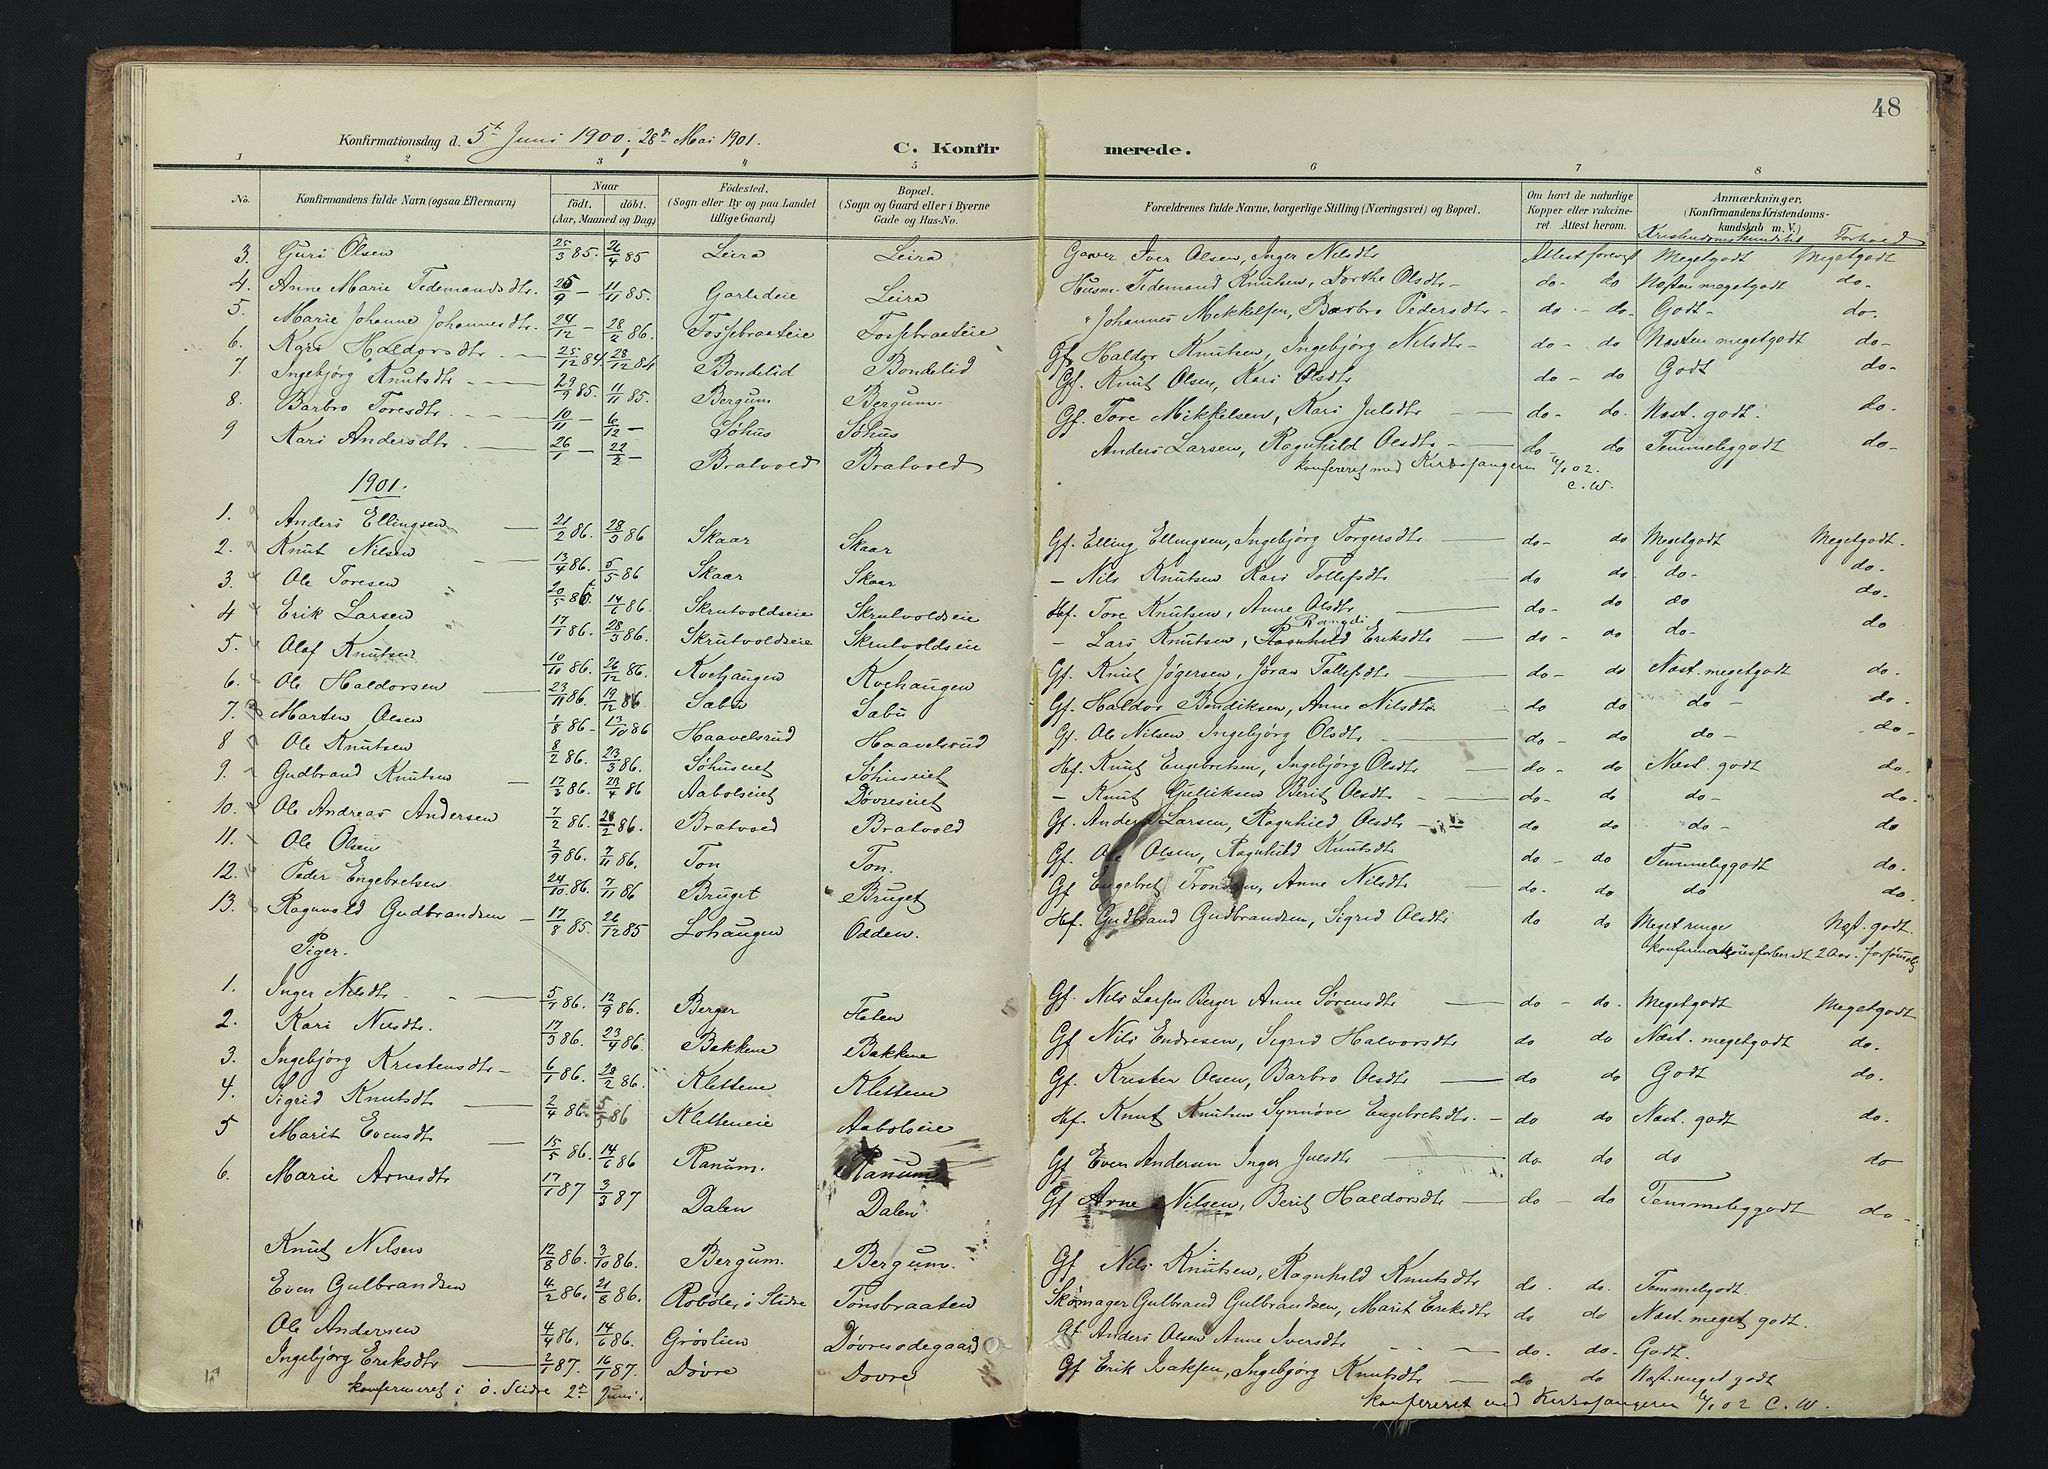 48
Konfirmationsdag d. 5t Juni 1900, 28d Mai 1901.
C. Konfirmerede.
1 2 3 4 5 6 7 8
No. Konfirmandens fulde Navn (ogsaa Efternavn) Naar födt. döbt. (Aar, Maaned og Dag) Födested. (Sogn eller By og paa Landet tillige Gaard) Bopæl. (Sogn og Gaard eller i Byerne Gade og Hus-No. Forældrenes fulde Navne, borgerlige Stilling (Næringsvei) og Bopæl. Om havt de naturlige Kopper eller vakcineret. Attest herom. Anmærkninger, (Konfirmandens Kristendomskundskab m. V.)
Kristendomskundskab Forhold
3. Guri Olsen 25/3 85. 26/4 85 Leira Leira Gaver Iver Olsen, Inger Nilsdtr Attest forevist Megetgodt Megetgodt
4. Anne Marie Tedemandsdtr. 25/9 - 11/11 85. Garlideie Leira Husm. Tedemand Knutsen, Dorthe Olsdtr - do - do Næsten megetgodt do -
5. Marie Johanne Johannesdtr. 24/12 - 28/2 86. Fossebraateie Fossebraateie " Johannes Mekkelsen, Barbro Pedersdtr - do - do. Godt - do.
6. Kari Haldorsdtr 25/12 84 28/12 84 Bondelid Bondelid Gf. Haldor Knutsen, Ingebjörg Nilsdtr - do - do Næsten megetgodt do -
7. Ingebjörg Knutsdtr 29/9 85. 11/11 85. Bergum Bergum. Gf. Knut Olsen, Kari Olsdtr do - do Godt do -
8. Barbro Toresdtr. 10/11 - 6/12 - Søhus Søhus Gf. Tore Mikkelsen, Kari Julsdtr do - do. Næst. godt. do.
9 Kari Andersdtr 26/1 - 22/2 - Bratvold Bratvold Anders Larsen, Ragnhild Olsdtr - do - do Temmeliggodt do -
konfereret med Kirkesangeren 4/1 02. C. W.
1901.
1. Anders Ellingsen 21/2 86. 28/3 86 Skaar Skaar Gf. Elling Ellingsen, Ingebjörg Torgersdtr do - do Megetgodt Megetgodt.
2. Knut Nilsen 13/4 86. 5/5 86 Skaar Skaar - Nils Knutsen Kari Tollefsdtr do do. do - do.
3. Ole Toresen 20/5 86. 14/6 86. Skrutvoldseie Skrutvoldseie Hf. Tore Knutsen, Anne Olsdtr do - do do do.
4 Erik Larsen 17/1 86. 28/3 86. Skrutvoldseie Skrutvoldseie - Lars Knutsen, Ragnhild Rangdi Eriksdtr do - do do - do
5. Olaf Knutsen 10/10 86. 26/12 86. Kvehaugen Kvehaugen Gf. Knut Jögersen, Jöran Tollefsdtr do - do Næst. megetgodt do.
6. Ole Haldorsen 23/11 86. 19/12 86 Sæbu Sæbu Gf. Haldor Bendiksen, Anne Nilsdtr do do do - do.
7. Marten Olsen 1/8 86 - 13/10 86 Haavelsrud Haavelsrud Gf. Ole Nilsen Ingebjörg Olsdtr do - do do - do -
8 Ole Knutsen 8/2 86. 23/3 86. Søhuseiet Søhuseiet Hf. Knut Engebretsen, Ingebjörg Olsdtr do - do Næst. godt do.
9. Gudbrand Knutsen 17/3 86. 23/4 86 Aabolseiet Døvreseiet - Knut Gulliksen Berit Olsdtr do - do do - do.
10. Ole Andreas Andersen 7/2 86. 28/2 86. Bratvold Bratvold Gf. Anders Larsen, Ragnhild Olsdtr do do do - do
11. Ole Olsen 2/9 86. 7/11 86. Ton Ton. Gf. Ole Olsen, Ragnhild Knutsdtr do - do Temmeliggodt do.
12. Peder Engebretsen 24/10 86. 7/11 86 Bruget Bruget Gf Engebret Trondsen, Anne Nilsdtr do - do do do.
13. Ragnvald Gudbrandsen 17/8 85. 26/12 85 Lohaugen Odden. Hf. Gudbrand Gudbrandsen, Sigrid Olsdtr do do Meget ringe Næst. godt.
konfirmationsforberedt 2 Aar.
Piger.
1. Inger Nilsdtr. 5/9 86. 12/9 86. Berger Flaten Gf. Nils Larsen Berger Anne Sørensdtr do - do. Megetgodt Megetgodt
2. Kari Nilsdtr. 17/3 86. 23/4 86. Bakkene Bakkene Gf Nils Endresen, Sigrid Halvorsdtr do do Næst. megetgodt do.
3. Ingebjörg Kristensdtr - 6/1 86. 28/2 86. Klettene Klettene Gf. Kristen Olsen, Barbro Olsdtr do do Godt do.
4. Sigrid Knutsdtr 2/4 86. 5/5 86 Kletteneie Aabolseie Hf. Knut Knutsen Synnøve Engebretsdtr. - do do Næst. godt do.
5 Marit Evensdtr 15/5 86. 14/6 86 Ranum. Ranum Gf Even Andersen Inger Julsdtr do do do do
6. Marie Arnesdtr 17/1 87 3/3 87 Dalen Dalen Gf Arne Nilsen, Berit Haldorsdtr do - do Temmeliggodt do -
Knut Nilsen 12/8 86. 3/10 86. Bergum. Bergum. Gf Nils Knutsen, Ragnhild Knutsdtr do. do. Temmelgodt.
Even Gulbrandsen 4/2 86. 21/8 86. Robøle i ø Slidre Tonsbraaten Skomager Gulbrand Gulbrandsen, Marit Eriksdtr do do Næst. meget godt.
Ole Andersen 4/4 86. 14/6 86. Gröslien Døvresødegaard Gf Anders Olsen Anne Iversdtr do. do. Godt.
Ingebjörg Eriksdtr 2/1 87. 16/1 87. Døvre Dovre Gf Erik Isaksen, Ingebjörg Knutsdtr do do Næst. meget godt
konfirmeret i ö. Slidre 2n Juni.
konfereret med Kirkesangeren 4/1 02 C. W.